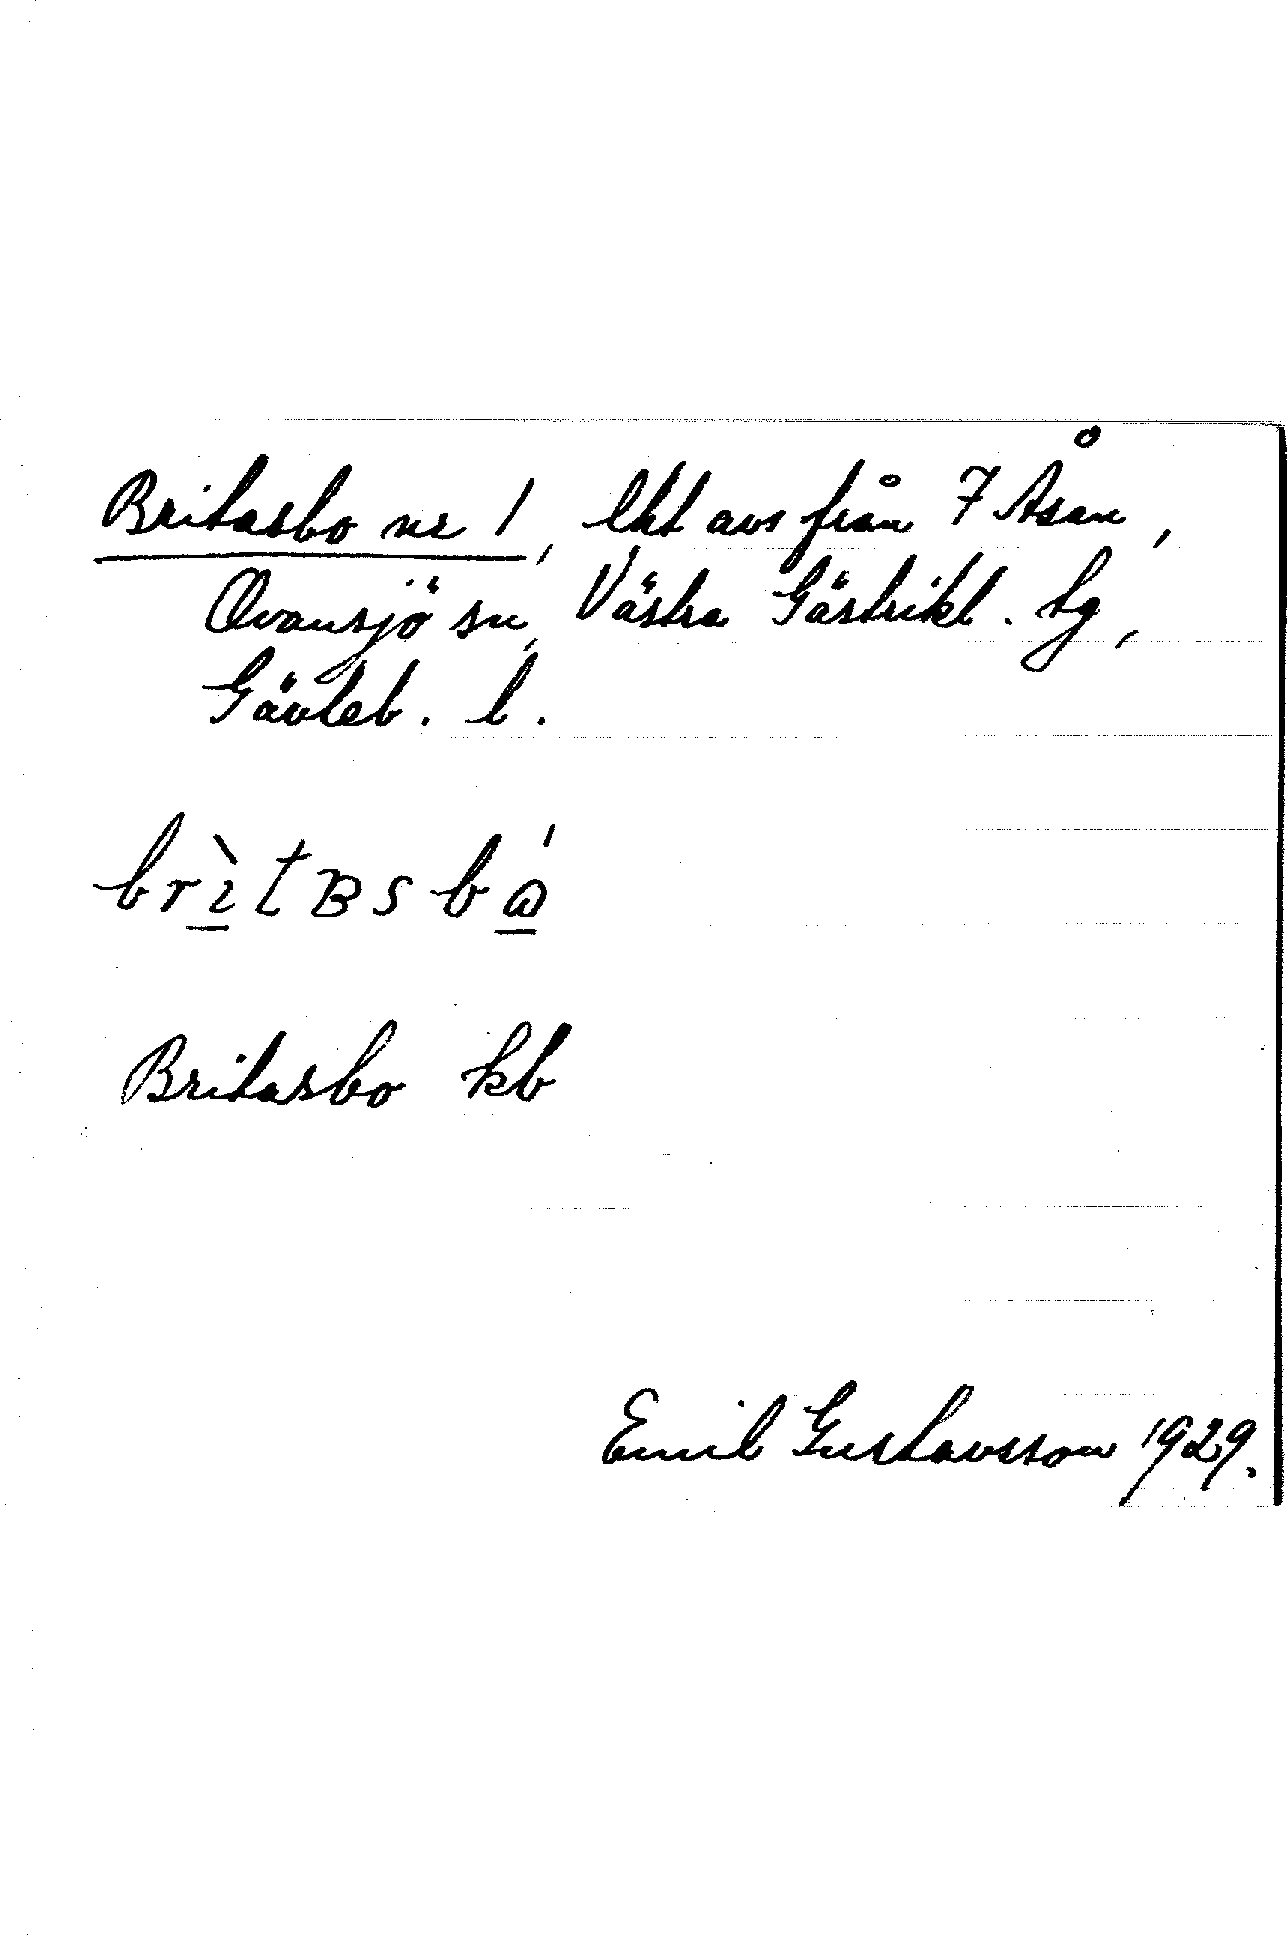 Britasbo nr 1, lht avs från 7 Åsen,
Ovansjö sn, Västra Gästrikl. tg,
Gävleb. l.
brìtʙsbó̲
Britasbo kb
Emil Gustavsson 1929.